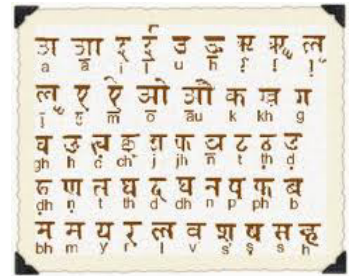 अ आ इ ई उ ऊ ऋ ॠ ऌ
a ā i ī u ṛ ḷ
ए ऐ ओ औ क ख ग
ō āu k kh g
घ ङ च छ ज झ ञ ट ठ ड
gh h c ch j jh ñ t ṭh ḍ
ढ ण त थ द ध न प फ ब
ḍh ṇ t th d dh n p ph b
म य र ल व श ष स ह
bh m y r l v s h